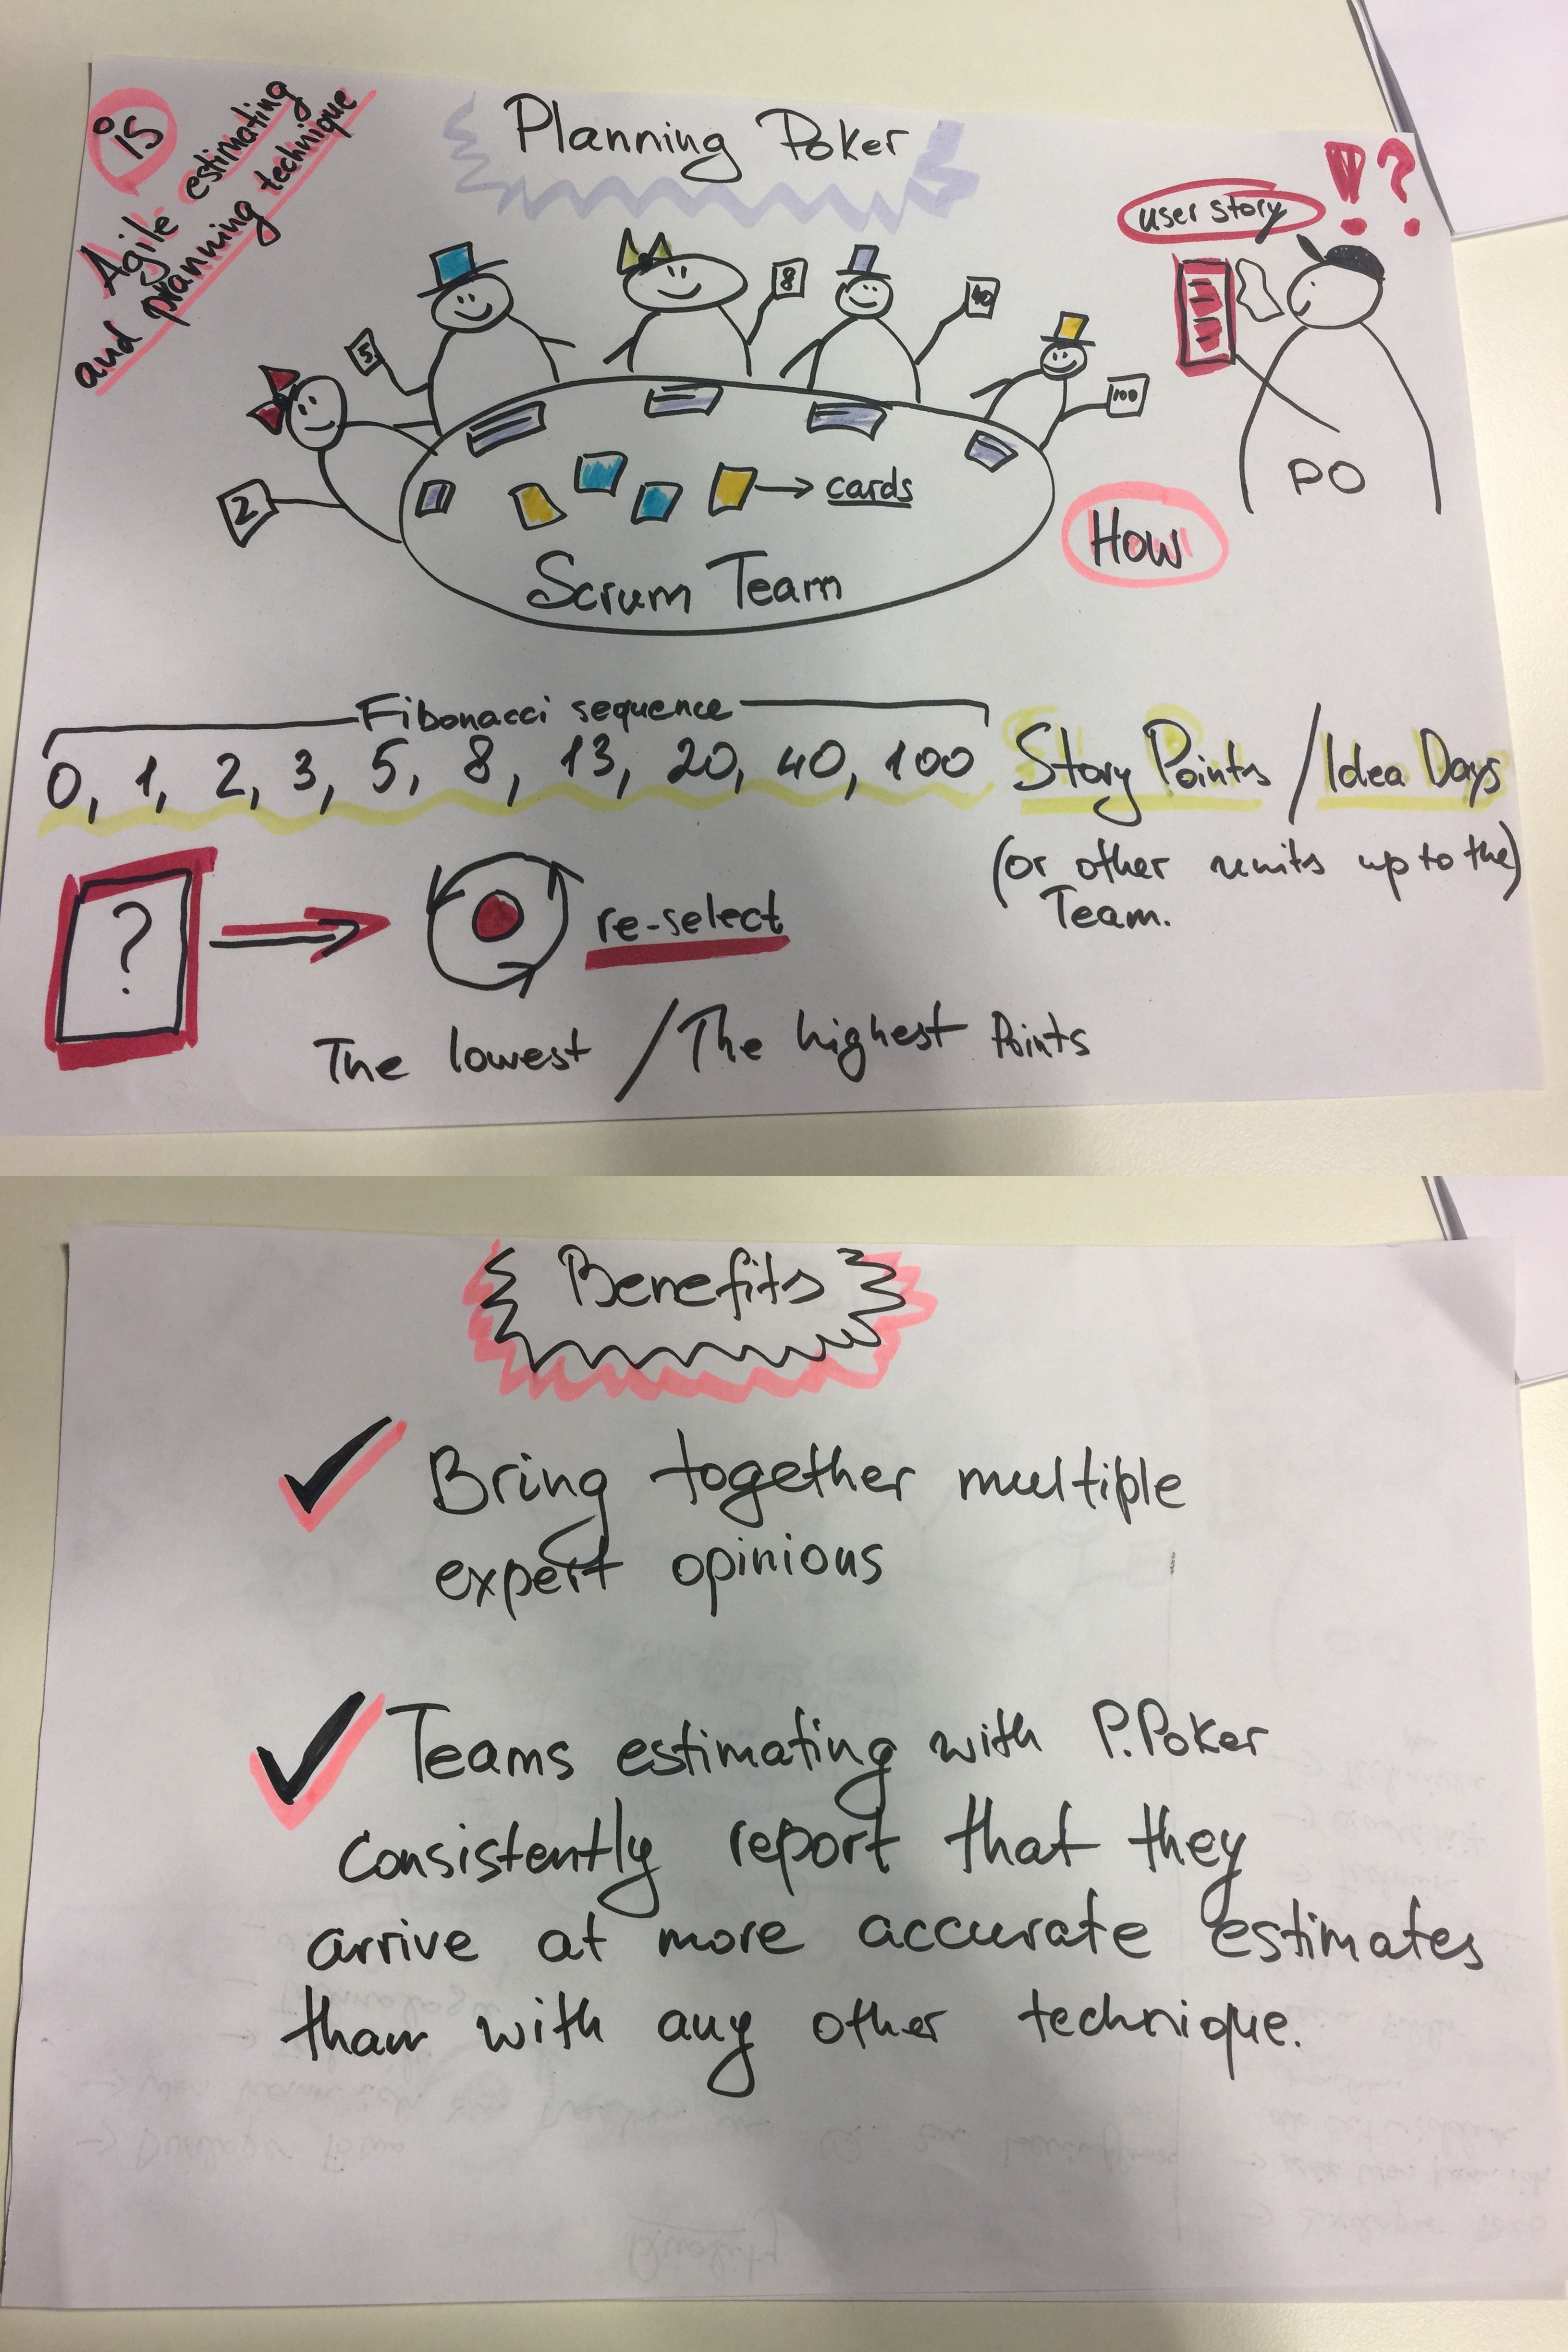 is
Agile estimating
and pranning technique
Planning Poker
user story
!?
5
8
40
100
2
cards
Scrum Team
PO
How
Fibonacci sequence
0, 1, 2, 3, 5, 8, 13, 20, 40, 100
Story Points / Idea Days
(or other units up to the)
Team.
?
re-select
The lowest / The highest Points
Benefits
Bring together multiple
expert opinions
Teams estimating with P.Poker
consistently report that they
arrive at more accurate estimates
than with any other technique.